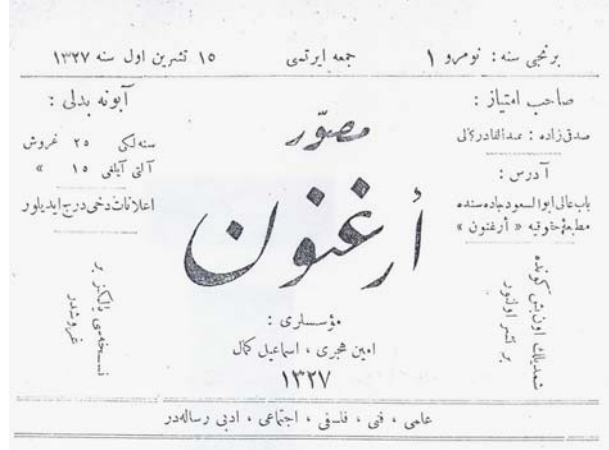 برنجی سنه : نومرو ١
جمعه ایرتسی
١٥ تشرین اول سنه ١٣٢٧
صاحب امتیاز :
صدقی‌زاده : عبدالقادر کمالی
آدرس :
باب عالی ابوالسعود جاده‌سنده
مطبعهٔ حقوقیه « أرغنون »
شمدیلك اون بش کونده
بر نشر اولنور
مصوّر
أرغنون
مؤسسلری :
امین هجری ، اسماعیل کمال
١٣٢٧
آبونه بدلی :
سنه‌لکی ٢٥ غروش
آلتی آیلغی ١٥ »
اعلانات دخی درج ایدیلور
نسخه‌سی یالکز بر
غروشدر
علمی ، فنی ، فلسفی ، اجتماعی ، ادبی رساله‌در